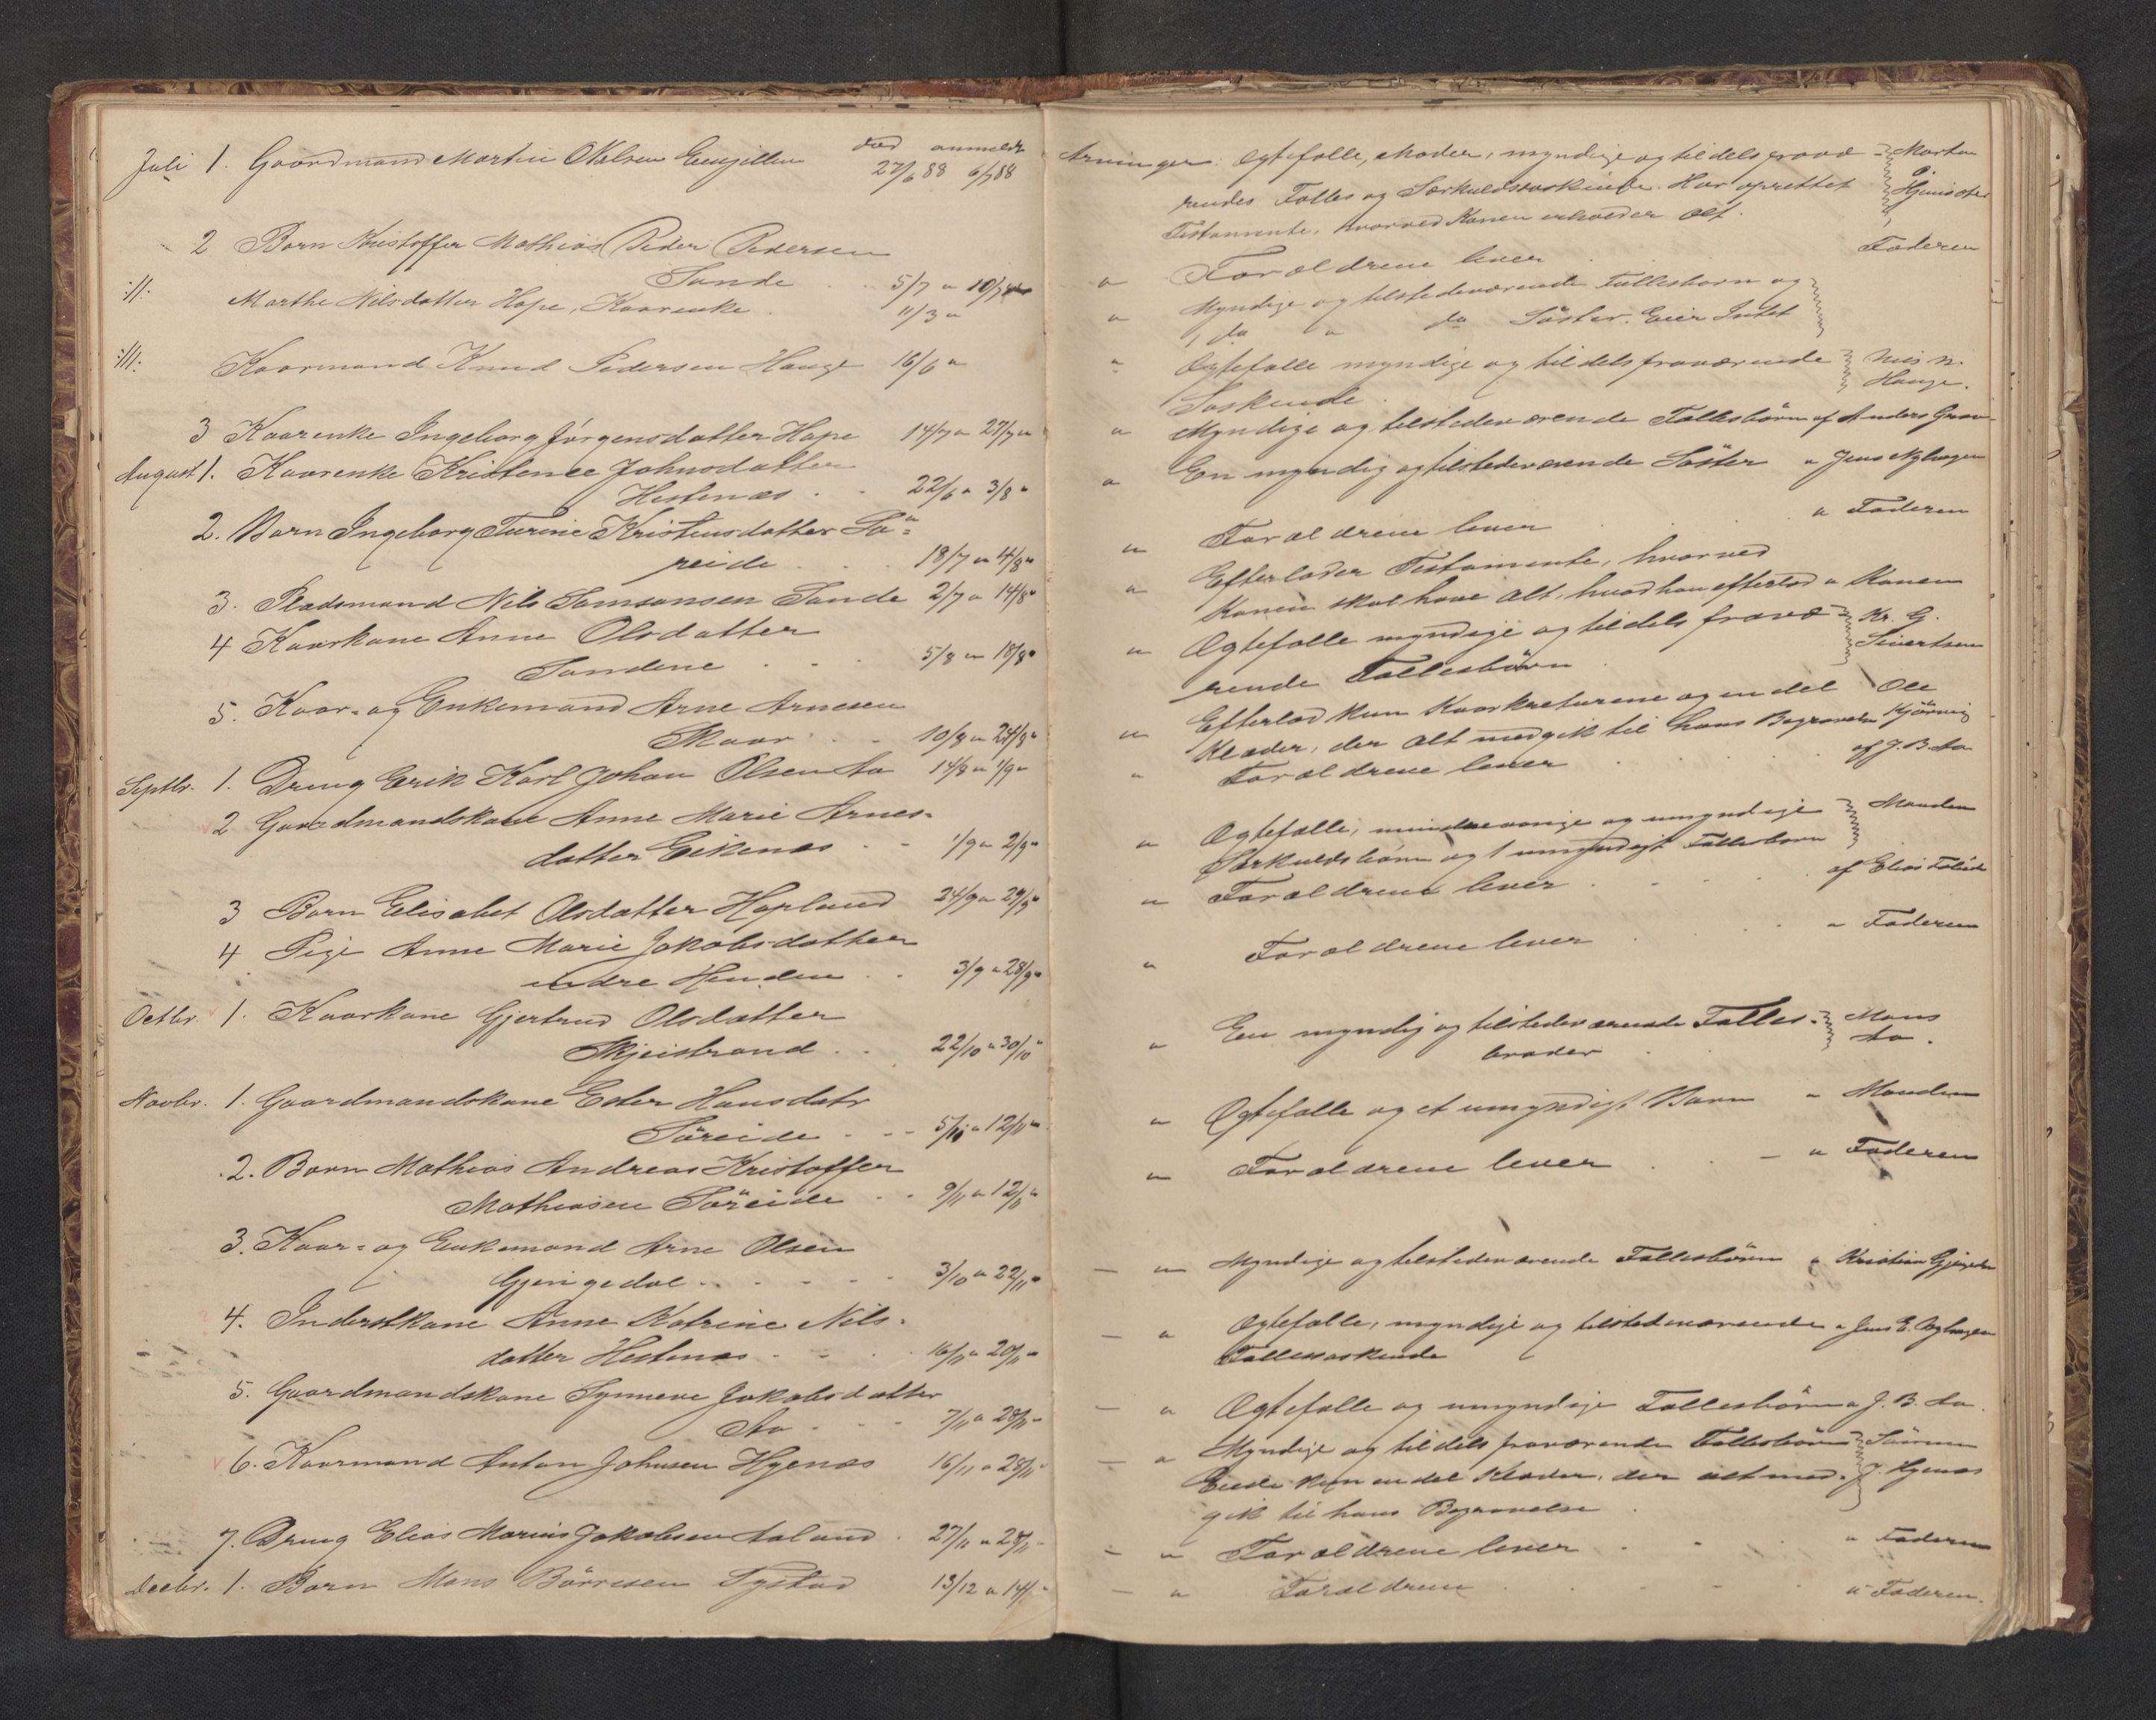 død anmeldt
Juli 1. Gaardmand Martin Olsen 27/6 88 6/7 88
2 Barn Kristoffer Mathias Peder Pedersen
Sande 5/7 " 10/7 "
:/1: Marthe Nilsdatter Hope, Kaarenke 11/3 "
:/11: Kaarmand Knud Pedersen Hauge 16/6 "
3 Kaarenke Ingeborg Jörgensdatter Hope 14/7 " 27/7 "
August 1. Kaarenke Kristence Johnsdatter
Hestenæs 22/6 " 3/8 "
2. Barn Ingeborg Turine Kristensdatter Sö=
reide 18/7 " 4/8 "
3. Pladsmand Nils Samsonsen Sande 2/7 " 14/8 "
4 Kaarkone Anne Olsdatter
Sandene 5/8 " 18/8 "
5. Kaar= og Enkemand Arne Arnesen
Skaar 10/8 " 24/8 "
Septbr. 1. Dreng Erik Karl Johan Olsen Aa 14/8 " 1/9 "
2 Gaardmandskone Anne Marie Arnes=
datter Eikenæs 1/9 " 2/9 "
3 Barn Elisabet Olsdatter Hopland 24/9 " 29/9 "
4 Pige Anne Marie Jakobsdatter
indre Henden 3/9 " 28/9 "
Octbr. 1. Kaarkone Gjertrud Olsdatter
Skjeistrand 22/10 " 30/10 "
Novbr. 1. Gaardmandskone Ester Hansdatr
Söreide 5/11 " 12/11 "
2. Barn Mathias Andreas Kristoffer
Mathiasen Söreide 9/11 " 12/11 "
3. Kaar= og Enkemand Arne Olsen
Gjengedal 3/10 " 22/11 "
4. Inderstkone Anne Katrine Nils=
datter Hestenæs 16/11 " 20/11 "
5. Gaardmandskone Synneve Jakobsdatter
Aa 7/11 " 28/11 "
6. Kaarmand Anton Johnsen Hyenæs 16/11 " 28/11 "
7. Dreng Elias Marius Jakobsen Aaland 27/11 " 28/11 "
Decbr. 1. Barn Mons Börresen Rystad 13/12 "
Arvinger: Ægtefælle, Moder, myndige og tildels fravæ= Morten
rendes Fælles og Særkuldssøskende. Har oprettet
Testamente, hvorved Konen erholder Alt.
" Forældrene lever Faderen
" Myndige og tilstedeværende Fællesbørn og
1 do " do Söster. Eier Intet
" Ægtefælle myndige og tildels fraværende Nils N.
Søskende. Hauge.
" Myndige og tilstedeværende Fællesbörn af Anders
" En myndig og tilstedeværende Söster " Jens Myhagen
" Forældrene lever " Faderen
" Efterlader Testamente, hvorved
Konen skal have Alt, hvad han efterlod " Konen
" Ægtefælle myndige og tildels fravæ= Kr. G.
rende Fællesbörn Sivertsen
" Efterlod kun Kaarkreturene og en del Ole
Klæder, der Alt medgik til hans Begravelse Kjörvig
" Forældrene lever af J. B. Aa
" Ægtefælle, mindreaarige og umyndige Manden
Særkuldsbörn og 1 umyndigt Fællesbarn
" Forældrene lever af Elias
" Forældrene lever " Faderen
" En myndig og tilstedeværende Fælles= Mons
broder Aa.
" Ægtefælle og et umyndigt Barn " Manden
" Forældrene lever " Faderen
" Myndige og tilstedeværende Fællesbörn " Kristian
" Ægtefælle, myndige og tilstedeværende " Jens E. Myhagen
Fællessøskende
" Ægtefælle og umyndige Fællesbörn " J. B. Aa.
" Myndige og tildels fraværende Fællesbörn Sörren
Eiede kun en del Klæder, der alt med= J. Hyenæs
gik til hans Begravelse
" Forældrene lever " Faderen
" Forældrene " Faderen.